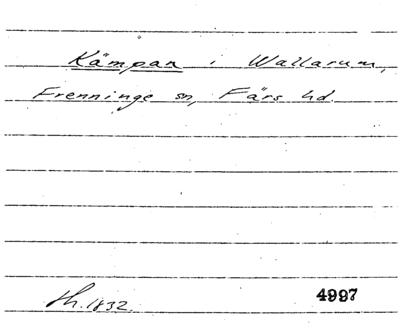 Kämpan i Wallarum,
Frenninge sn, Färs hd.
Th. 1832. 4997